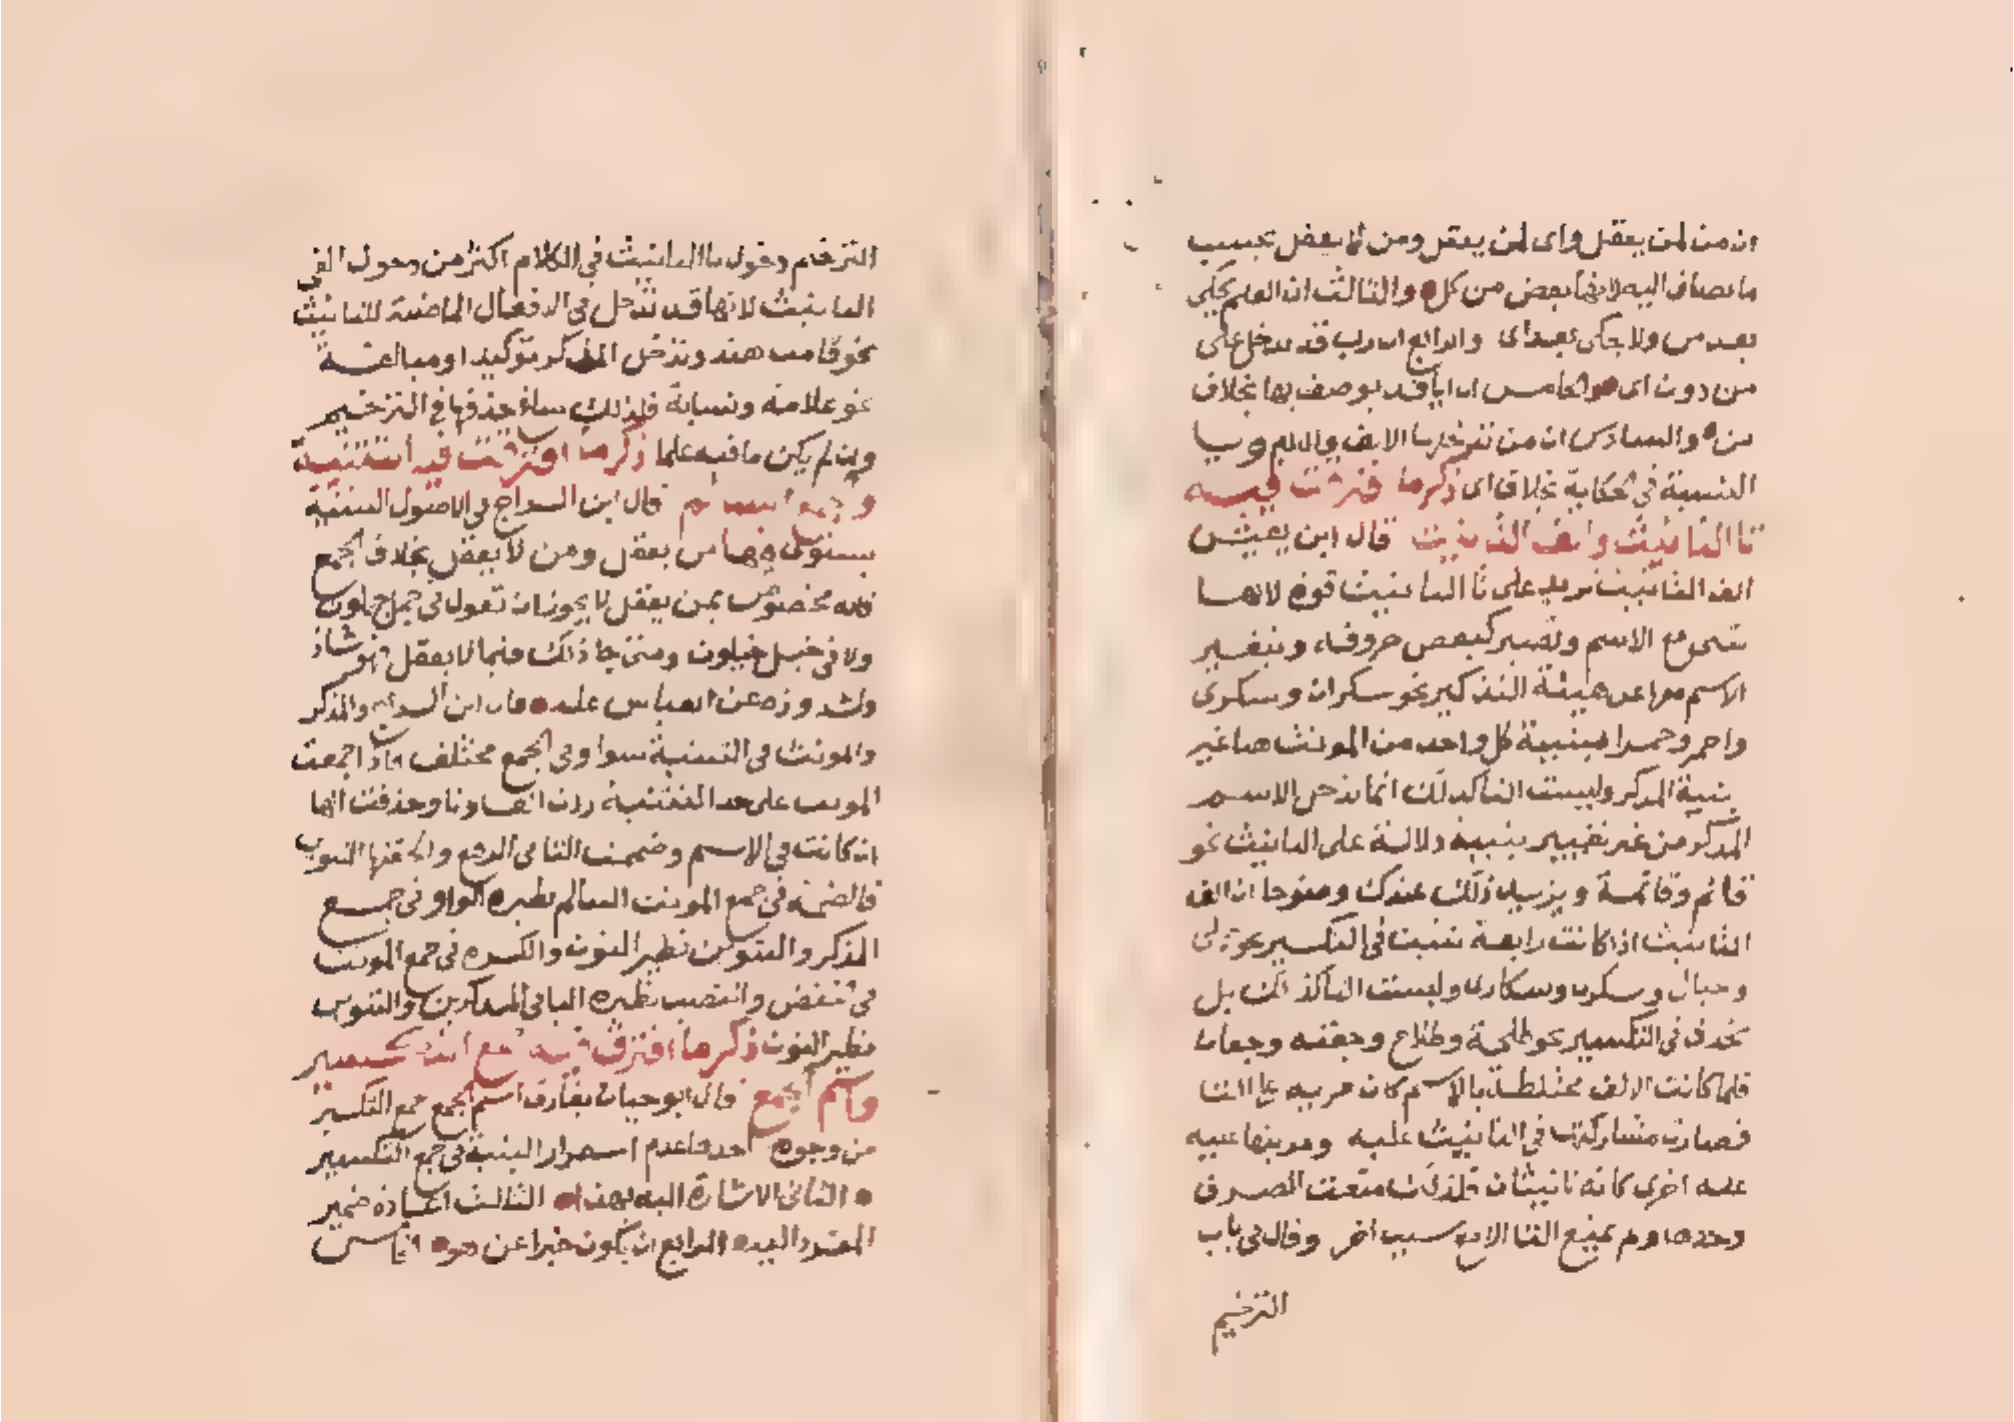 ان من لمن يعقل واى لمن يعقل ومن لا يعقل بحسب
ما تضاف اليه لانها بعض من كل والثالث ان العلم يحكى
بعد من ولا يحكى بعد اى والرابع ان رب قد تدخل على
من دون اى والخامس ان ايا قد يوصف بها بخلاف
من والسادس ان من الالف واللام ويا
النسبة فى الحكاية بخلاف اى ذكر ما فترقت فيه
تا التانيث والف التانيث قال ابن يعيش
الف التانيث تزيد على تا التانيث قوة لانها
تبنى مع الاسم وتصير كبعض حروفه ويتغير
الاسم معها عن هيئة التذكير نحو سكران وسكرى
واحمر وحمرا فبنية كل واحد من المونث هنا غير
بنية المذكر وليست التا كذلك انما تدخل الاسم
المذكر من غير تغيير بنيته دلالة على التانيث نحو
قائم وقائمة ويزيد ذلك عندك وضوحا ان الف
التانيث اذا كانت رابعة تثبت فى التكسير نحو حبلى
وحبالى وسكرى وسكارى وليست التا كذلك بل
تحذف فى التكسير نحو طلحة وطلاح وجفنة وجفان
فلما كانت الالف مختلطة بالاسم كان لها مزية على التا
فصارت مشاركتها فى التانيث علة ومزيتها عليه
علة اخرى كانه تانيثان فلذلك منعت الصرف
وحدها ولم تمنع التا الا مع سبب اخر وقال فى باب
الترخيم
الترخيم دخول تا التانيث فى الكلام اكثر من دخول الفى
التانيث لانها قد تدخل فى الافعال الماضية للتانيث
نحو قامت هند وتدخل المذكر توكيدا ومبالغة
نحو علامة ونسابة فلذلك ساغ حذفها فى الترخيم
وان لم يكن ما فيه علما ذكر ما افترقت فيه التثنية
وجمع السالم قال ابن السراج فى الاصول التثنية
يستوى فيها من يعقل ومن لا يعقل بخلاف الجمع
فانه مخصوص بمن يعقل لا يجوز ان تقول فى جمل جملون
ولا فى جبل جبلون ومتى جا ذلك فيما لا يعقل فهو شاذ
عليه قال ابن السراج والمذكر
والمونث فى التثنية سوا وفى الجمع مختلف فاذا جمعت
المونث على حد التثنية زدت الفا وتا وحذفت الها
ان كانت فى الاسم وضممت التا فى الرفع والحقتها التنوين
فالضمة فى جمع المونث السالم نظيره الواو فى جمع
المذكر والتنوين نظير النون والكسره فى جمع المونث
فى الخفض والنصب نظيره اليا فى المذكرين والتنوين
نظير النون ذكر ما افترق فيه جمع التكسير
واسم الجمع قال ابو حيان يفارق اسم الجمع جمع التكسير
من وجوه احدها عدم استمرار البنية فى جمع التكسير
الثانى الاشارة اليه بهذا الثالث اعادة ضمير
المفرد اليه الرابع ان يكون خبرا عن هو الخامس